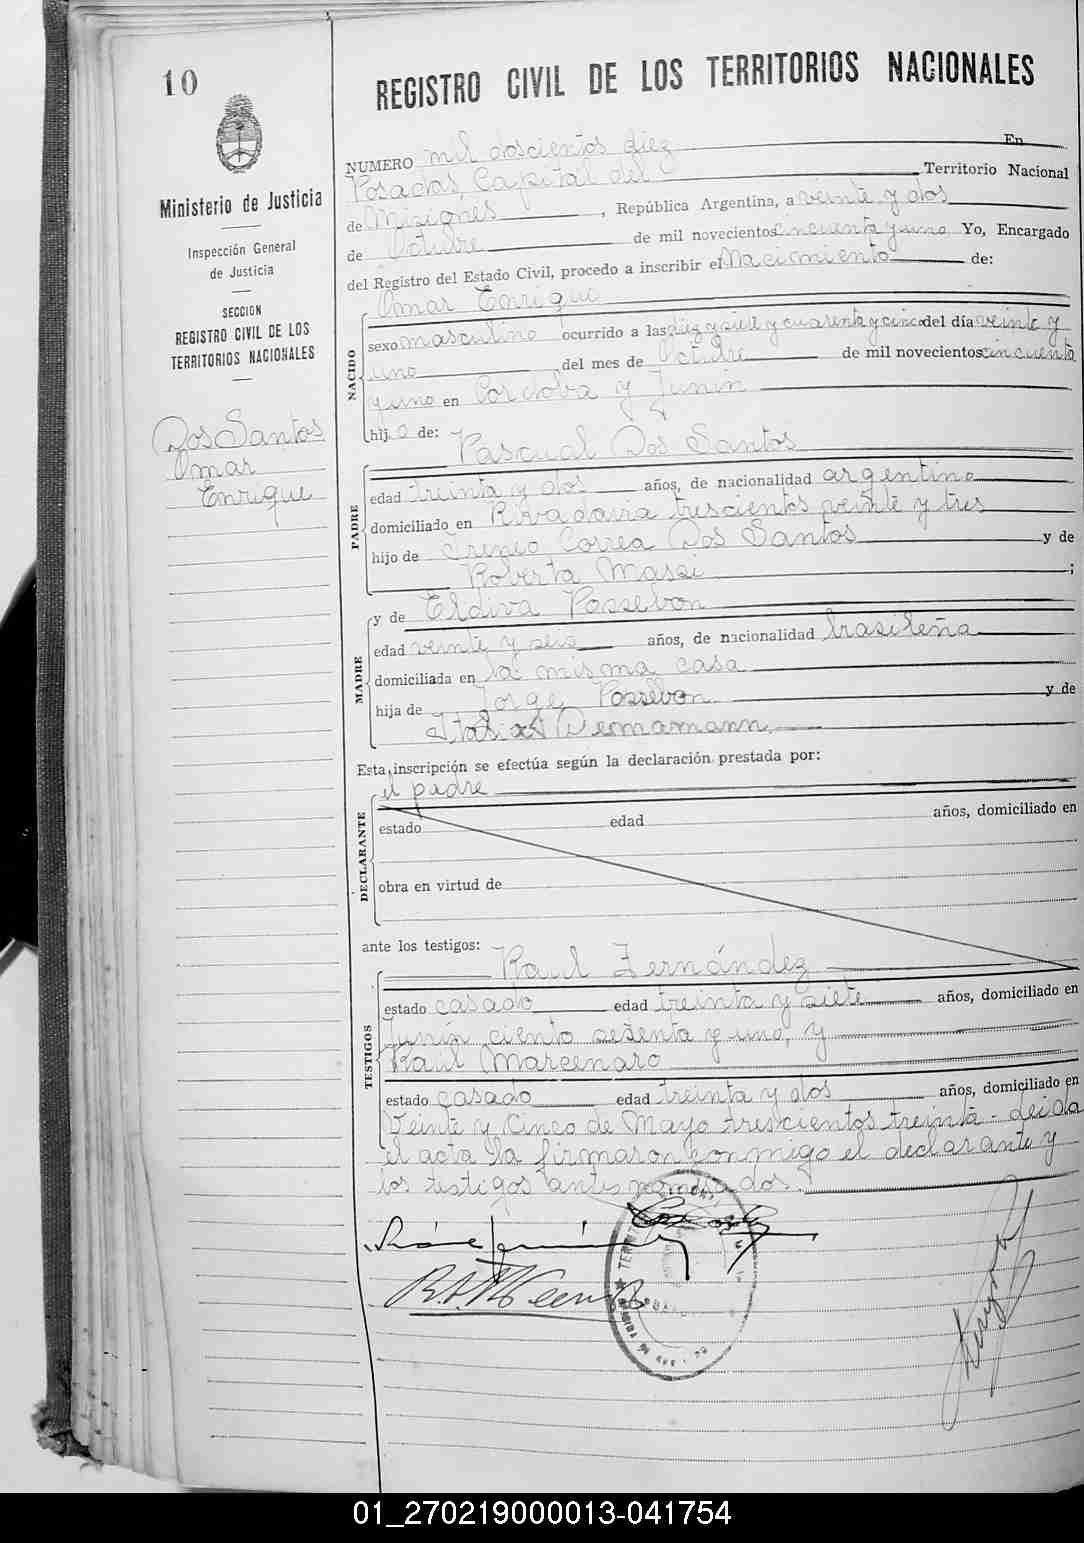 10
REGISTRO CIVIL DE LOS TERRITORIOS NACIONALES
Ministerio de Justicia
Inspección General
de Justicia
SECCION
REGISTRO CIVIL DE LOS
TERRITORIOS NACIONALES
Dos Santos
Omar
Enrique
NUMERO mil doscientos diez En
Posadas, Capital del Territorio Nacional
de Misiones, República Argentina, a veinte y dos
de Octubre de mil novecientos cincuenta y uno Yo, Encargado
del Registro del Estado Civil, procedo a inscribir el Nacimiento de:
NACIDO
Omar Enrique
sexo masculino ocurrido a las diez y siete y cuarenta y cinco del día veinte y
uno del mes de Octubre de mil novecientos cincuenta
y uno en Cordoba y Junín
hijo de:
PADRE
Pascual Dos Santos
edad treinta y dos años, de nacionalidad argentino
domiciliado en Rivadavia trescientos veinte y tres
hijo de Ireneo Correa Dos Santos y de
Roberta Massi ;
MADRE
y de Eldiva Possebon
edad veinte y seis años, de nacionalidad brasileña
domiciliada en la misma casa
hija de Jorge Possebon y de
Esta inscripción se efectúa según la declaración prestada por:
DECLARANTE
el padre
estado edad años, domiciliado en
obra en virtud de
ante los testigos:
TESTIGOS
Raul Fernández
estado casado edad treinta y siete años, domiciliado en
Junín ciento sesenta y uno, y
Raul Marcenaro
estado casado edad treinta y dos años, domiciliado en
Veinte y Cinco de Mayo trescientos treinta - leida
el acta la firmaron conmigo el declarante y
los testigos antes nombrados.
01_270219000013-041754